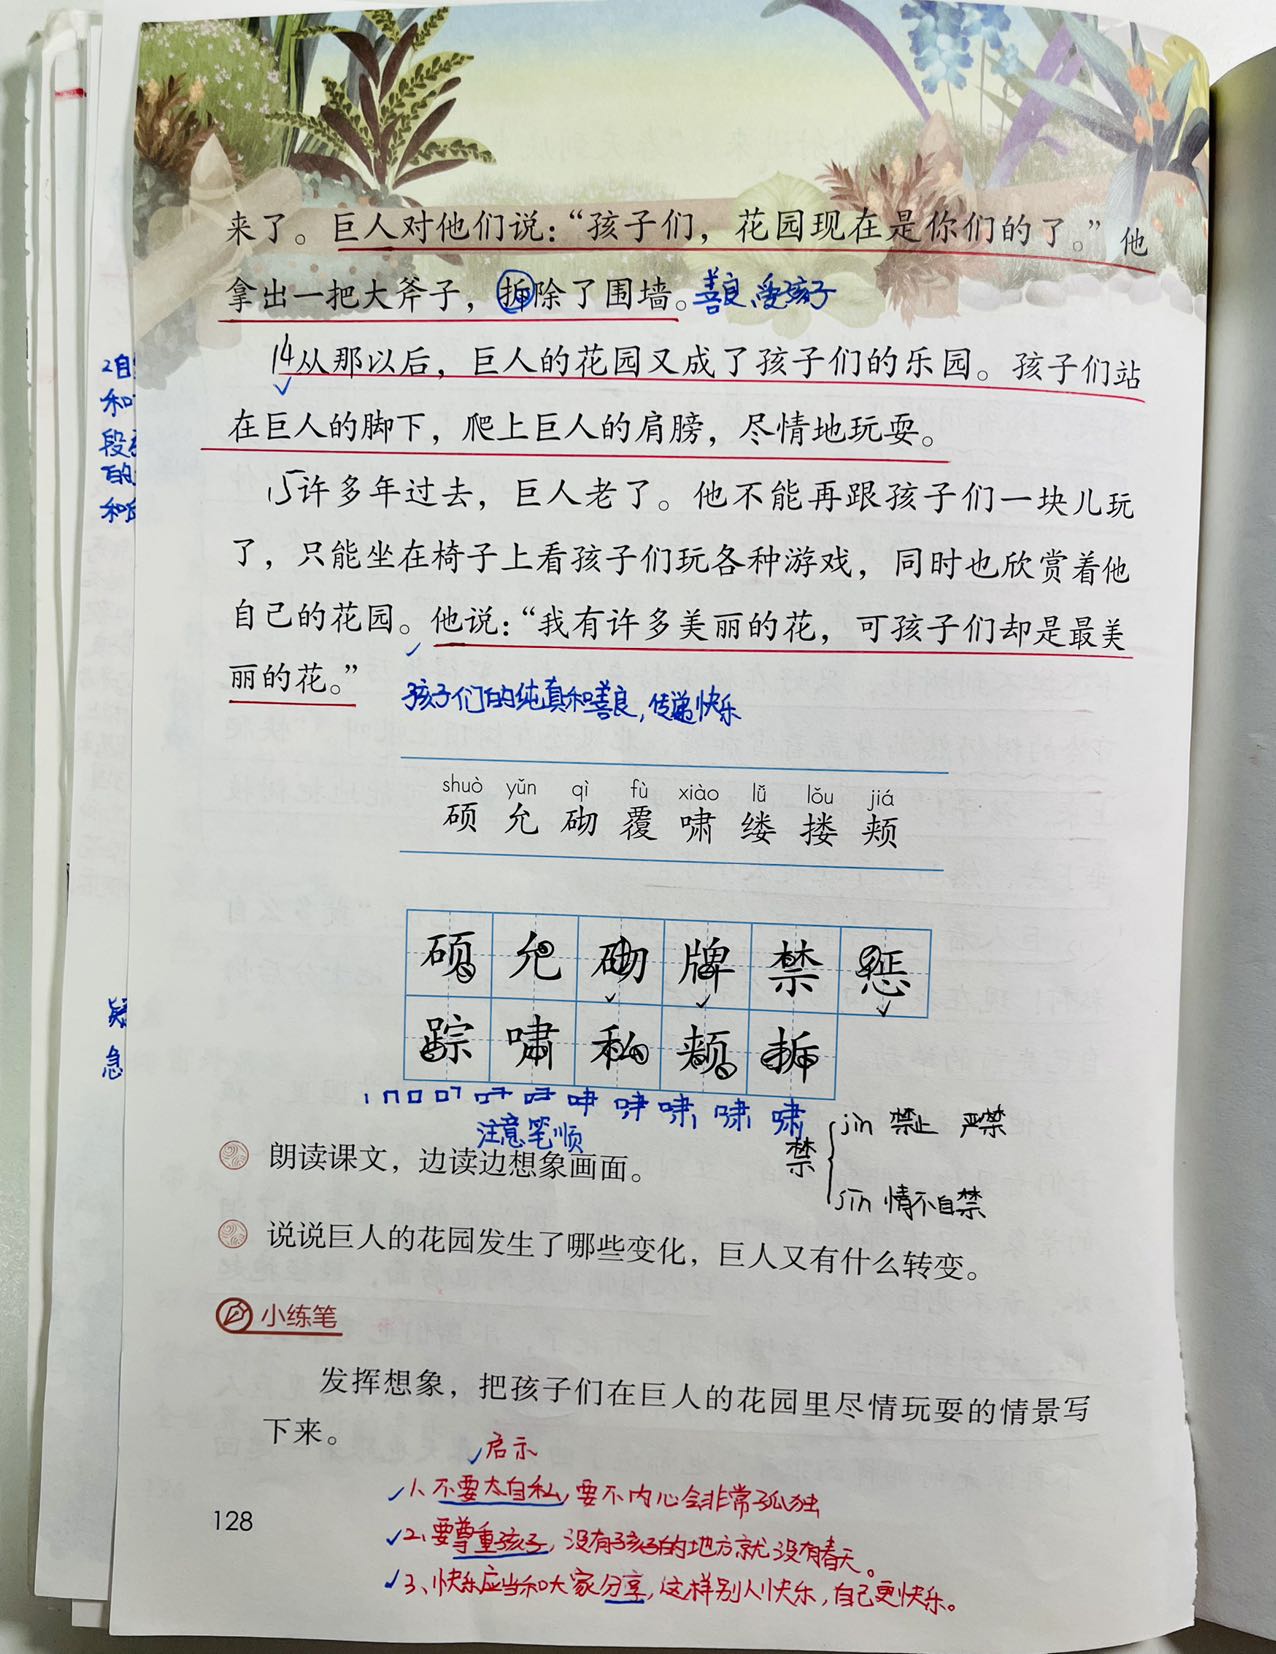 来了。巨人对他们说：“孩子们，花园现在是你们的了。”他
拿出一把大斧子，拆除了围墙。善良、爱孩子
14从那以后，巨人的花园又成了孩子们的乐园。孩子们站
在巨人的脚下，爬上巨人的肩膀，尽情地玩耍。
15许多年过去，巨人老了。他不能再跟孩子们一块儿玩
了，只能坐在椅子上看孩子们玩各种游戏，同时也欣赏着他
自己的花园。他说：“我有许多美丽的花，可孩子们却是最美
丽的花。”
孩子们的纯真和善良，传递快乐
shuò yǔn qì fù xiào lǚ lǒu jiá
硕 允 砌 覆 啸 缕 搂 颊
硕 允 砌 牌 禁 惩
踪 啸 私 颊 拆
注意笔顺
禁 jìn 禁止 严禁
jīn 情不自禁
朗读课文，边读边想象画面。
说说巨人的花园发生了哪些变化，巨人又有什么转变。
小练笔
发挥想象，把孩子们在巨人的花园里尽情玩耍的情景写
下来。
启示
1、不要太自私，要不内心会非常孤独
2、要尊重孩子，没有孩子的地方就没有春天。
3、快乐应当和大家分享，这样别人快乐，自己更快乐。
128